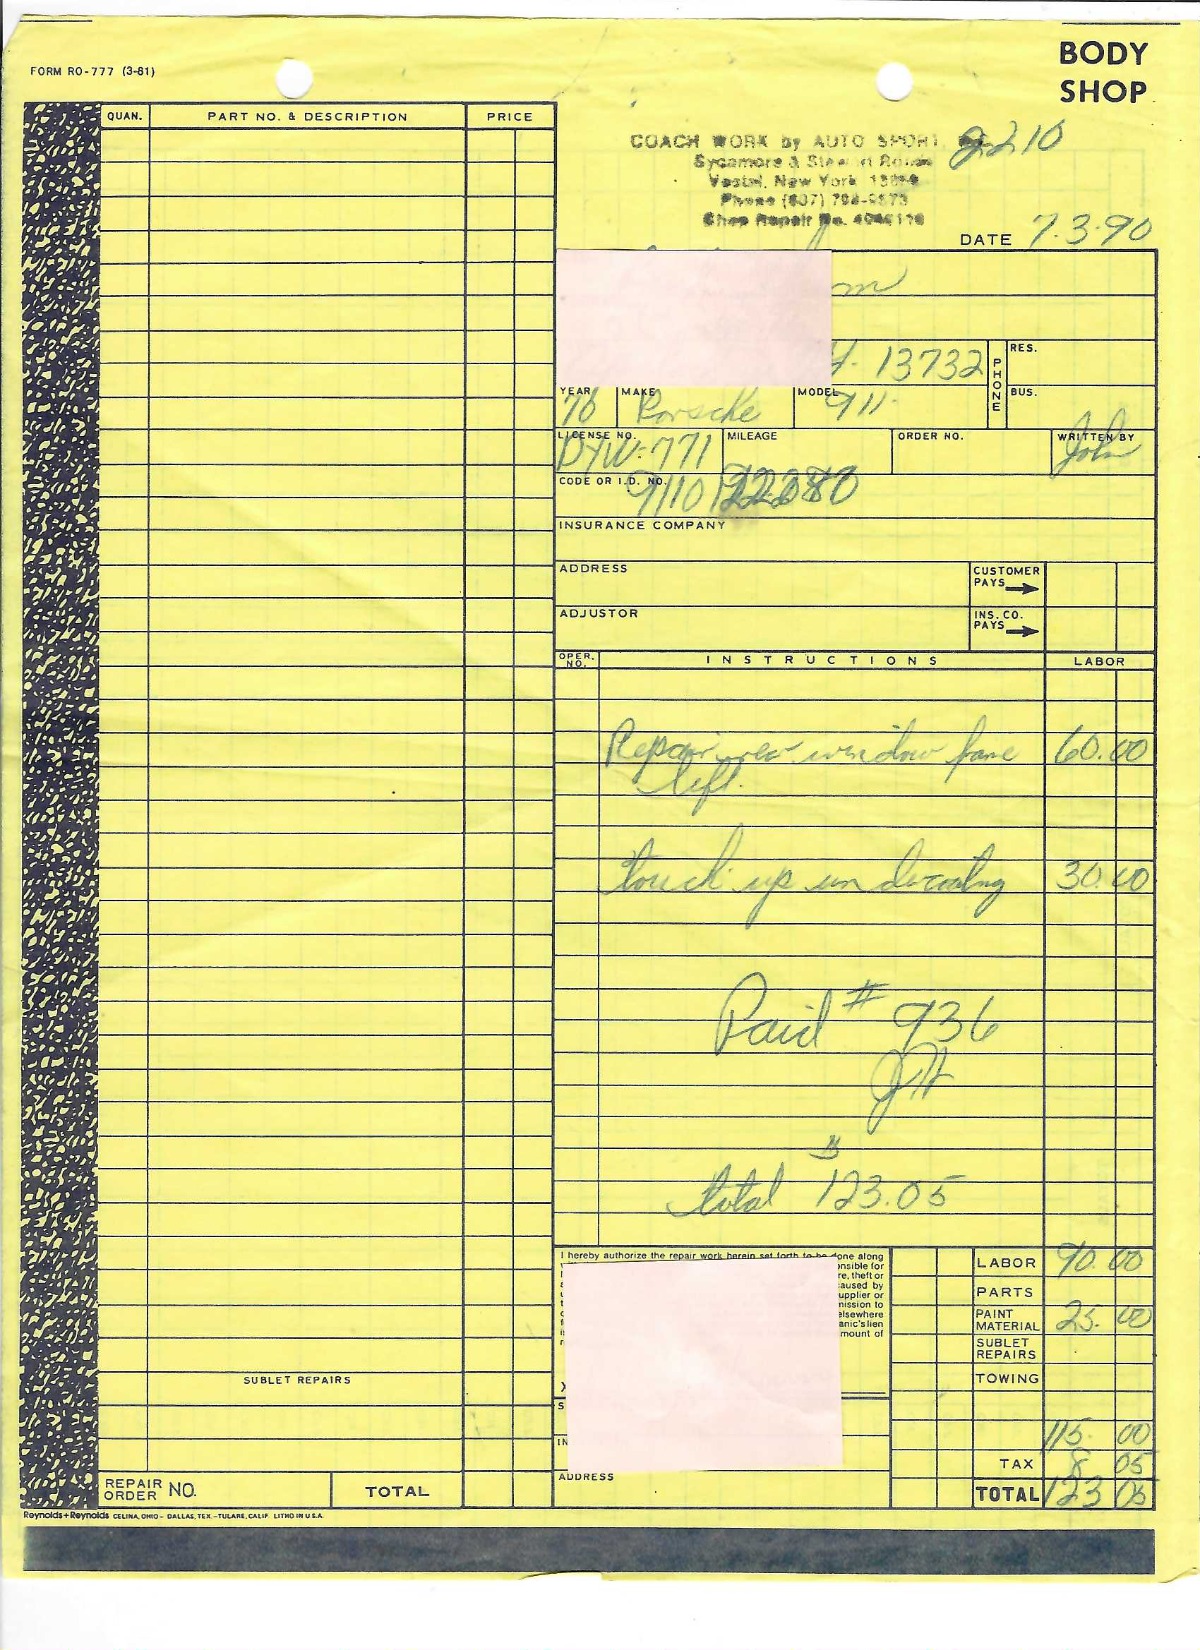 FORM RO-777 (3-81)
BODY
SHOP
QUAN. PART NO. & DESCRIPTION PRICE
COACH WORK by AUTO SPORT
2210
Sycamore &
Vestal, New York
Phone (607)
Shop Repair No.
DATE 7.3.90
13732
PHONE
RES.
BUS.
YEAR 76 MAKE Porsche MODEL 911
LICENSE NO. DYW-771 MILEAGE ORDER NO. WRITTEN BY John
CODE OR I.D. NO. 9110
INSURANCE COMPANY
ADDRESS CUSTOMER
PAYS
ADJUSTOR INS. CO.
PAYS
OPER.
NO. INSTRUCTIONS LABOR
Repair rear window 60.00
left.
touch up undercoating 30.00
Paid # 936
JH
$
total 123.05
I hereby authorize the repair work herein set forth to be done along
nsible for
re, theft or
aused by
upplier or
mission to
elsewhere
anic's lien
mount of
X
LABOR 90.00
PARTS
PAINT
MATERIAL 25.00
SUBLET
REPAIRS
TOWING
115.00
TAX 8 05
TOTAL 123 05
ADDRESS
SUBLET REPAIRS
REPAIR
ORDER NO. TOTAL
Reynolds+Reynolds CELINA, OHIO - DALLAS, TEX. - TULARE, CALIF. LITHO IN U.S.A.